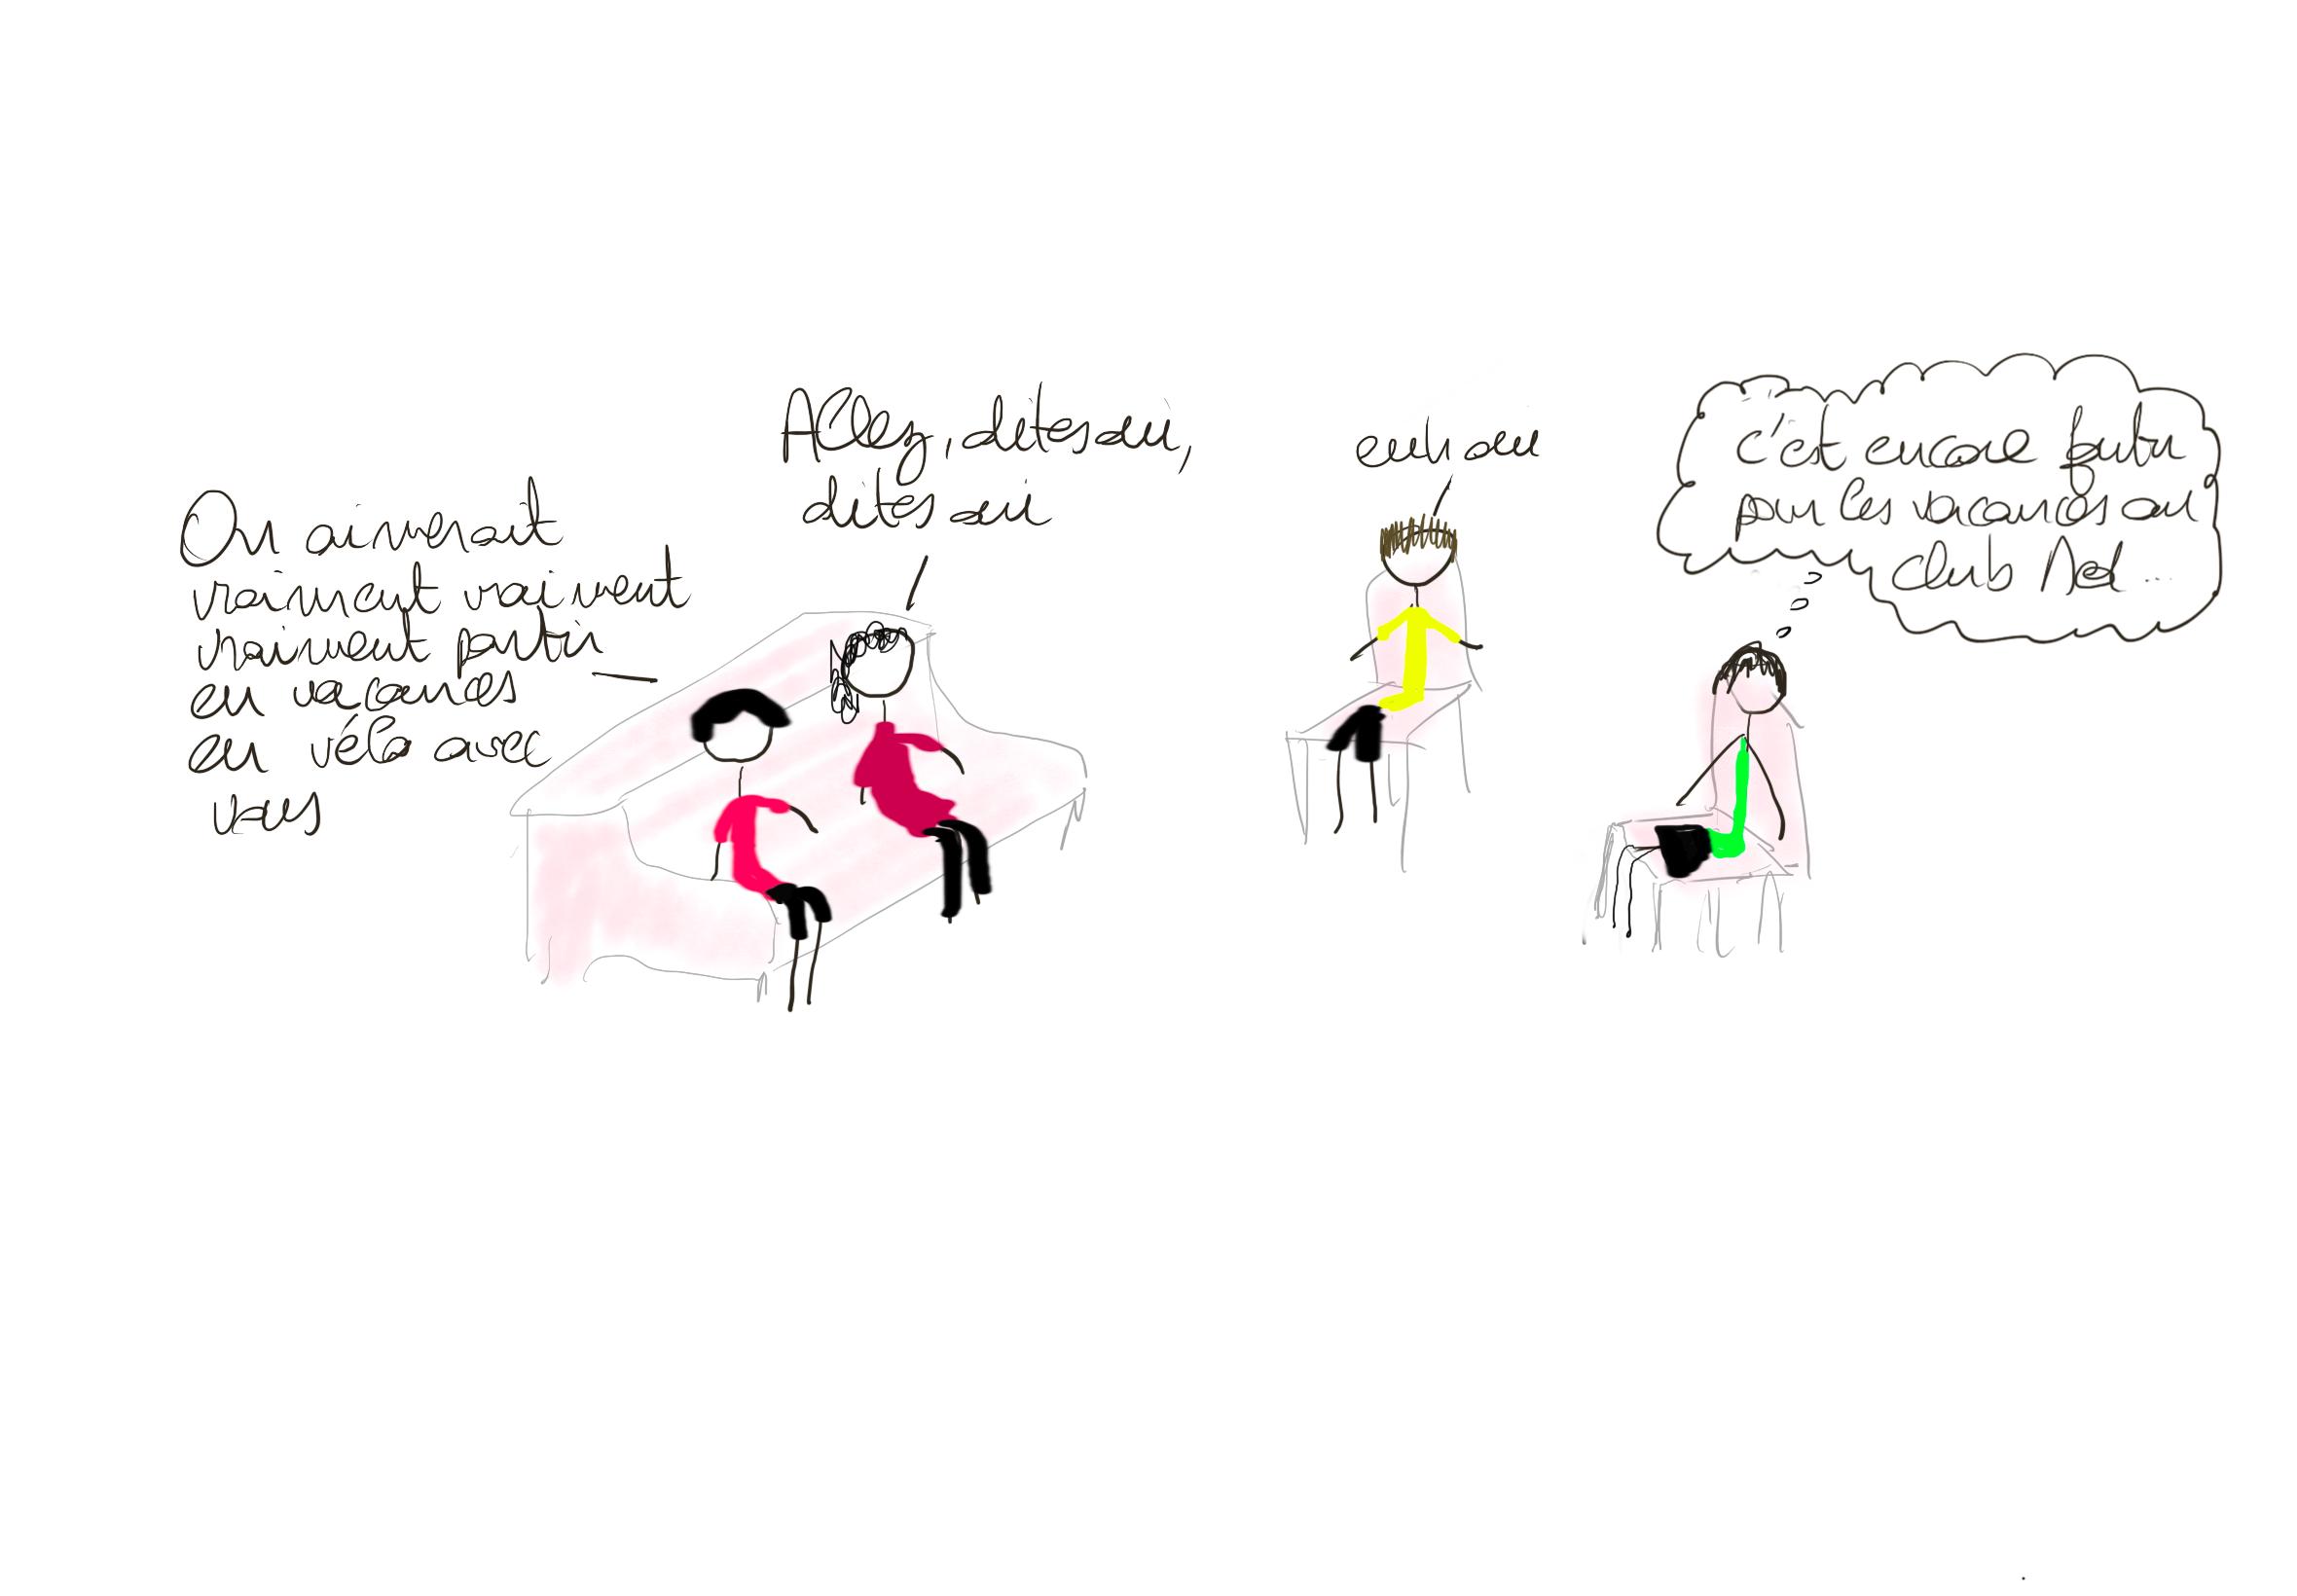 On aimerait
vraiment vraiment
vraiment partir
en vacances
en vélo avec
vous
Allez, dites oui,
dites oui
euh oui
c'est encore foutu
pour les vacances au
club Med...